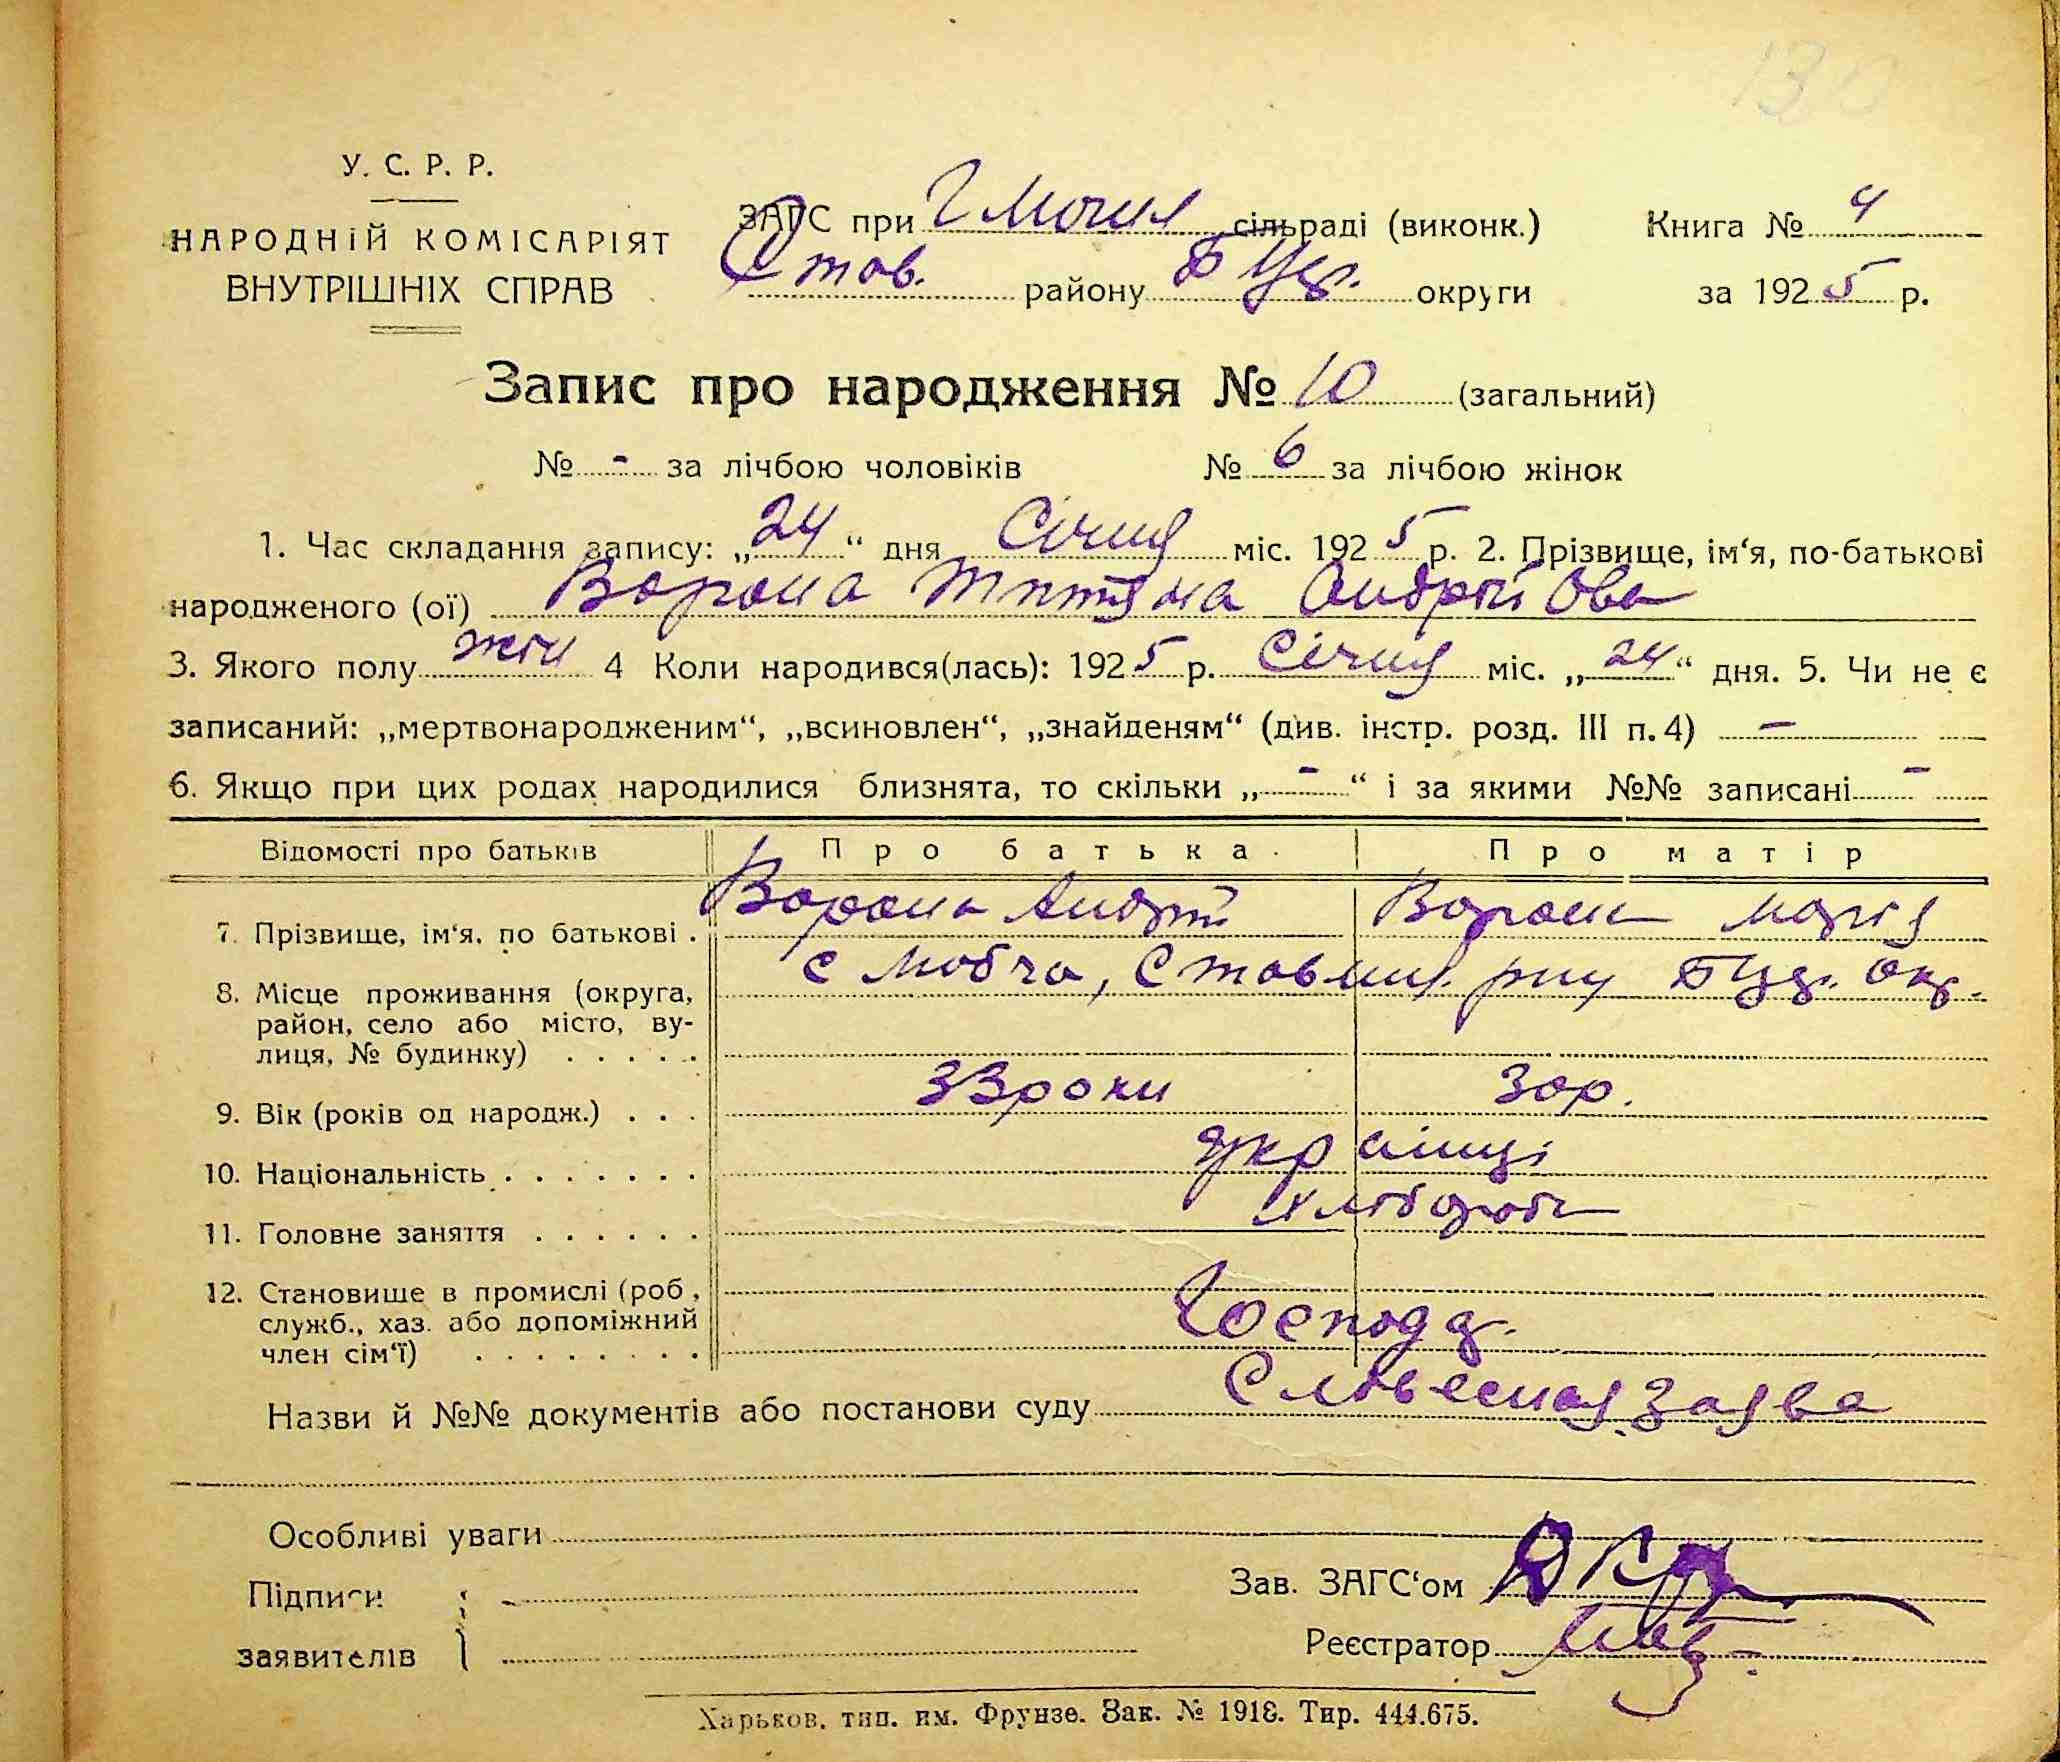 130
У. С. Р. Р.
НАРОДНІЙ КОМІСАРІЯТ
ВНУТРІШНІХ СПРАВ
ЗАГС при Г Могил сільраді (виконк.) Книга № 4
Став. району Б Цер. округи за 1925 р.
Запис про народження № 10 (загальний)
№ - за лічбою чоловіків № 6 за лічбою жінок
1. Час складання запису: „24“ дня Січня міс. 1925 р. 2. Прізвище, ім‘я, по-батькові
народженого (ої) Ворона Титяна Андрійова
3. Якого полу жін 4 Коли народився(лась): 1925 р. Січня міс. „24“ дня. 5. Чи не є
записаний: „мертвонародженим“, „всиновлен“, „знайденям“ (див. інстр. розд. III п. 4) –
6. Якщо при цих родах народилися близнята, то скільки „-“ і за якими №№ записані -
Відомості про батьків Про батька Про матір
7. Прізвище, ім‘я, по батькові . Ворона Андрій Ворона Марія
8. Місце проживання (округа, с , Ставищ. р-ну Б Цер. окр.
район, село або місто, ву-
лиця, № будинку) . . . . .
9. Вік (років од народж.) . . . 33 роки 30 р.
10. Національність . . . . . . . українці
11. Головне заняття . . . . . . хлібороби
12. Становище в промислі (роб.,
служб., хаз. або допоміжний Господ.
член сім‘ї) . . . . . . . .
Назви й №№ документів або постанови суду Словесная заява
Особливі уваги
Підписи Зав. ЗАГС‘ом
заявителів Реєстратор
Харьков, тип. им. Фрунзе. Зак. № 1918. Тир. 444.675.